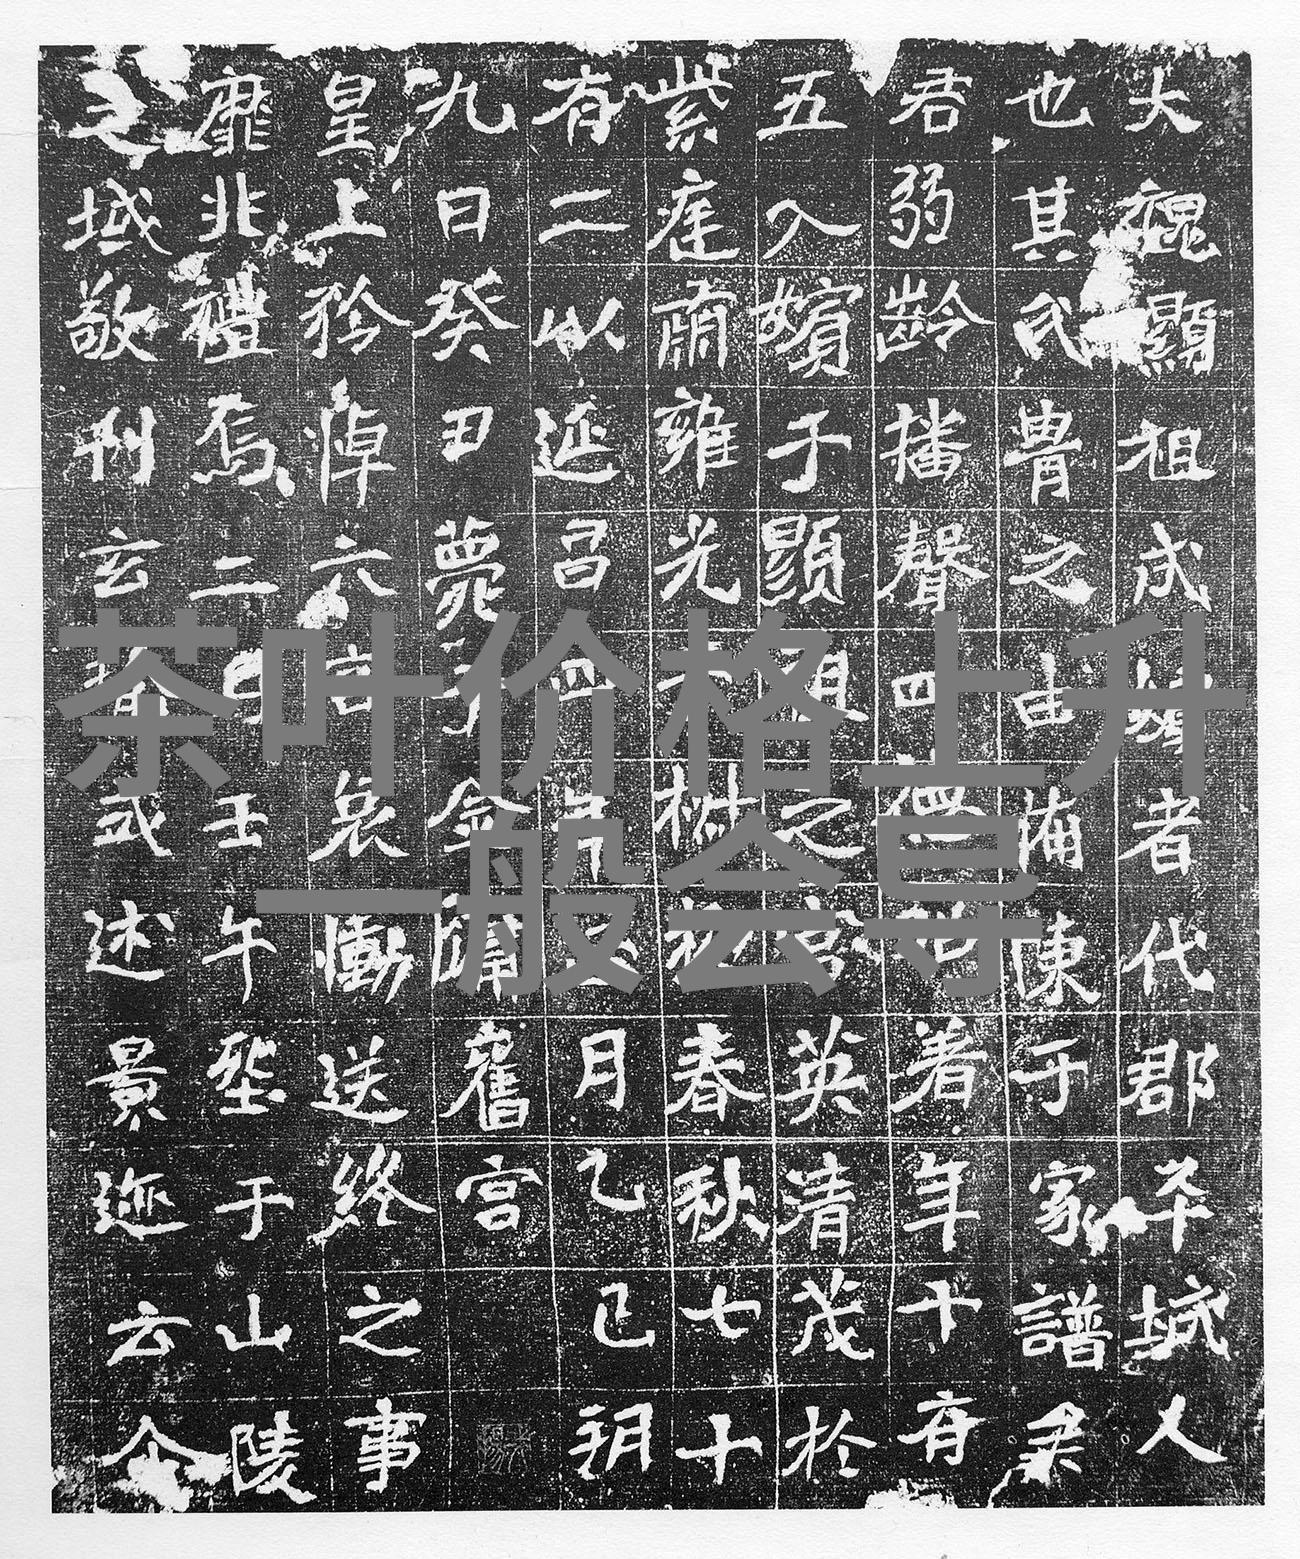 大魏顯祖成嬪者代郡平城人
也其氏胄之由備陳于家譜
君弱齡播聲四德著年十有
五入嬪于顯祖之宮英清茂於
紫庭肅雍光椒掖春秋七十
有二以延昌四年正月乙巳朔
九日癸丑薨於金墉舊宮
皇上矜悼六宮哀慟送終之事
靡非禮焉二月壬午塟于山陵
之域敬刊玄式述景迹云尒
茶叶价格上升
一般会导